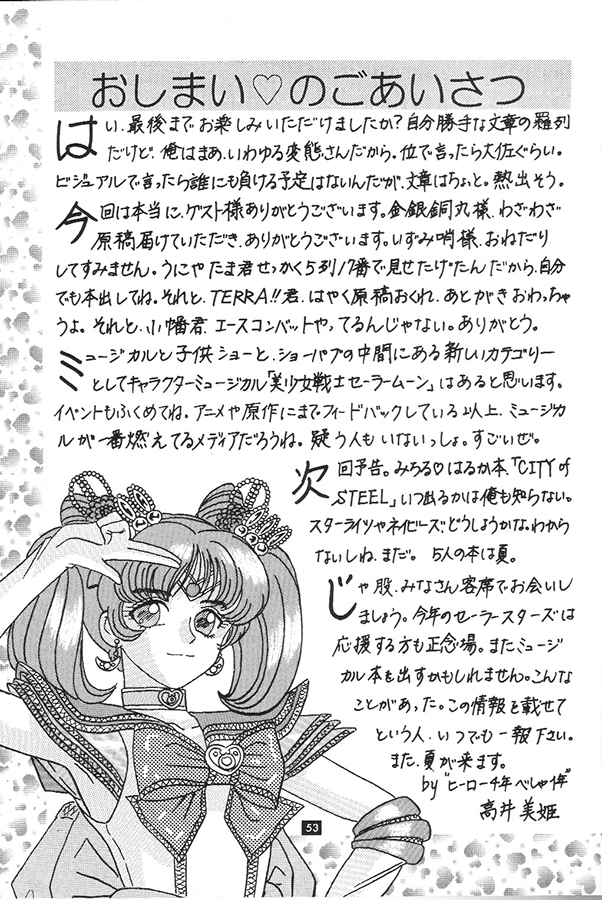 おしまい♡のごあいさつ
はい、最後までお楽しみいただけましたか?自分勝手な文章の羅列
だけど、俺はまあ、いわゆる変態さんだから。位で言ったら大佐ぐらい。
ビジュアルで言ったら誰にも負ける予定はないんだが、文章はちょっと。熱出そう。
今回は本当に、ゲスト様ありがとうございます。金銀銅丸様、わざわざ
原稿届けていただき、ありがとうございます。いずみ哨様、おねだり
してすみません。うにやたま君せっかく5列17番で見せたげたんだから、自分
でも本出してね。それと、TERRA!!君、はやく原稿おくれ、あとがきおわっちゃ
うよ。それと、小幡君、エースコンバットやってるんじゃない。ありがとう。
ミュージカルと子供ショーと、ショーパブの中間にある新しいカテゴリー
としてキャラクターミュージカル「美少女戦士セーラームーン」はあると思います。
イベントもふくめてね。アニメや原作にまでフィードバックしている以上、ミュージカ
ルが一番燃えてるメディアだろうね。疑う人もいないっしょ。すごいぜ。
次回予告。みちる♡はるか本、「CITY of
STEEL」いつ出るかは俺も知らない。
スターライツやネイビーズどうしようかな。わから
ないしね、まだ。5人の本は夏。
じゃ股、みなさん客席でお会いし
ましょう。今年のセーラースターズは
応援する方も正念場。またミュージ
カル本を出すかもしれません。こんな
ことがあった。この情報を載せて
という人、いつでも一報下さい。
また、夏が来ます。
by "ヒーロー4年べしゃ1年"
高井美姫
53